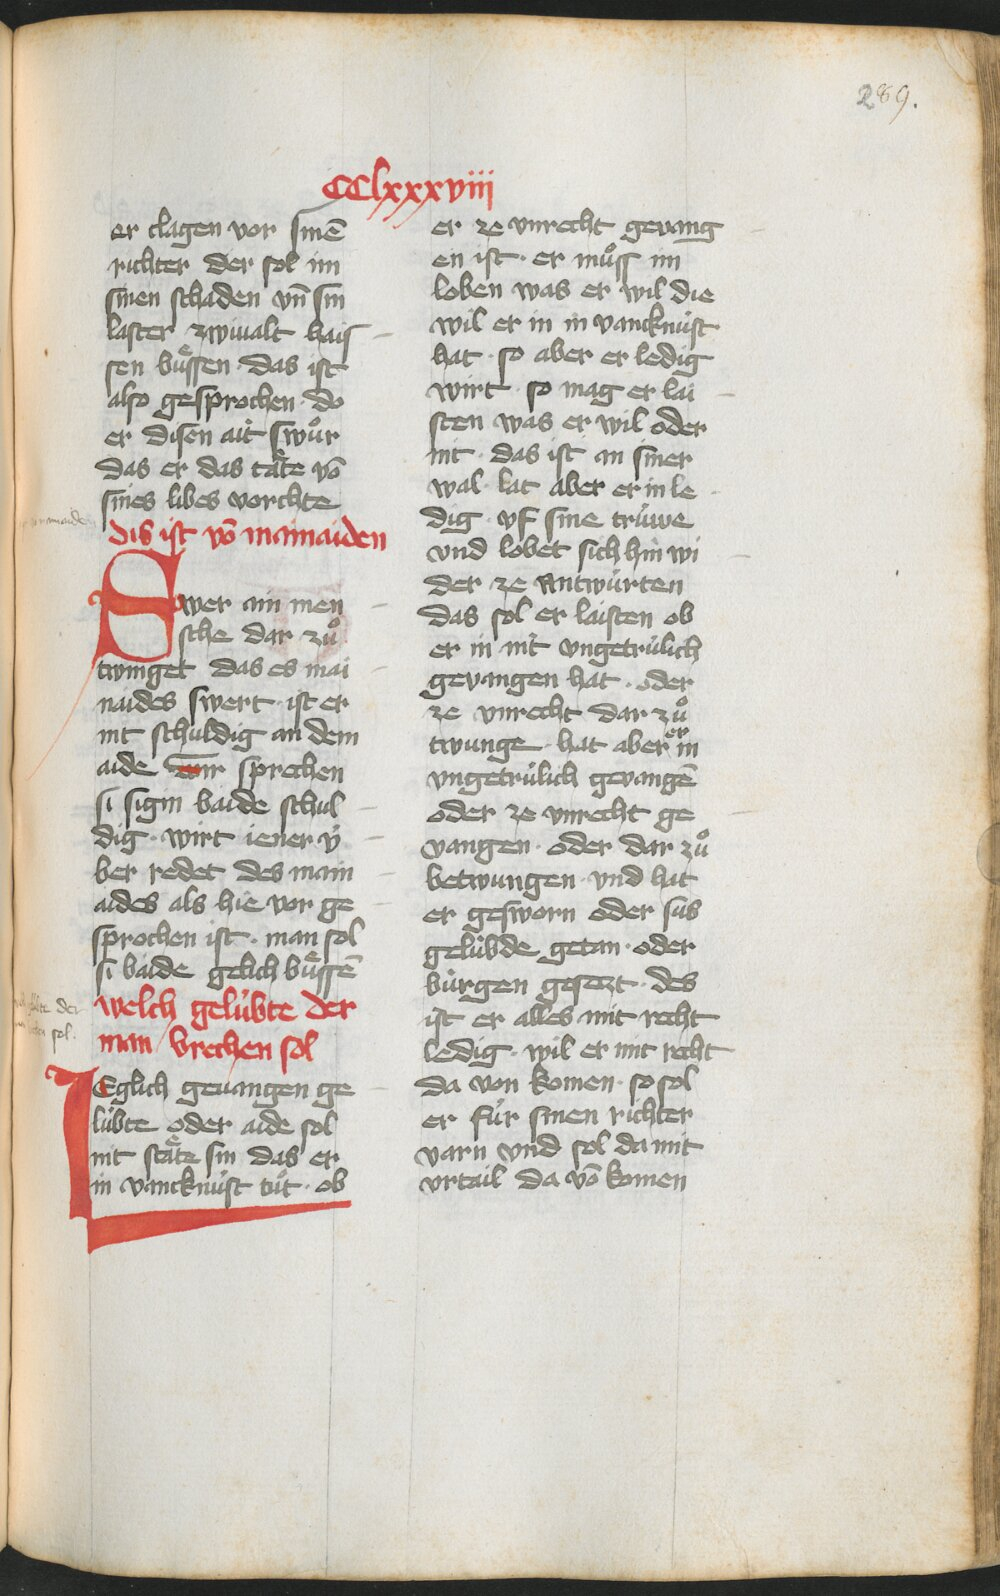 289.
CClxxxviii
er clagen vor sinē
richter der sol im
sinen schaden vn̄ sin
laster zwiualt hais
sen bu̍ssen · das ist
also gesprochen · do
er disen ait swůr
das er das tåte vō
sines libes vorchte
dis ist vō mainaiden
Swer ain men
sche dar zů
twinget das es mai
naides swert · ist er
nit schuldig an dem
aide wir sprechen
si sigin baide schul
dig · wirt iener v̈
ber redet des main
aides als hie vor ge
sprochen ist · man sol
si baide gelich bůssē
welch gelübte der
man brechen sol
IEglich geuangen ge
lübte oder aide sol
nit ståte sin das er
in vancknüst tůt · ob
er ze vnrecht geuang
en ist · er můss im
loben was er wil die
wil er in in vancknüst
hat · so aber er ledig
wirt · so mag er lai
sten was er wil oder
nit · das ist an siner
wal · lat aber er in le
dig · vf sine trüwe
vnd lobet sich hin wi
der ze Antwürten
das sol er laisten ob
er in nit vngetrülich
geuangen hat · oder
ze vnrecht dar zů
twunge · hat aber er in
vngetrülich geuangē
oder ze vnrecht ge
vangen · oder dar zů
betwungen · vnd hat
er gesworn oder sus
gelübde getan · oder
bürgen gesezt · des
ist er alles mit recht
ledig · wil er mit recht
da von komen · so sol
er für sinen richter
varn vnd sol da mit
vrtail da vō komen